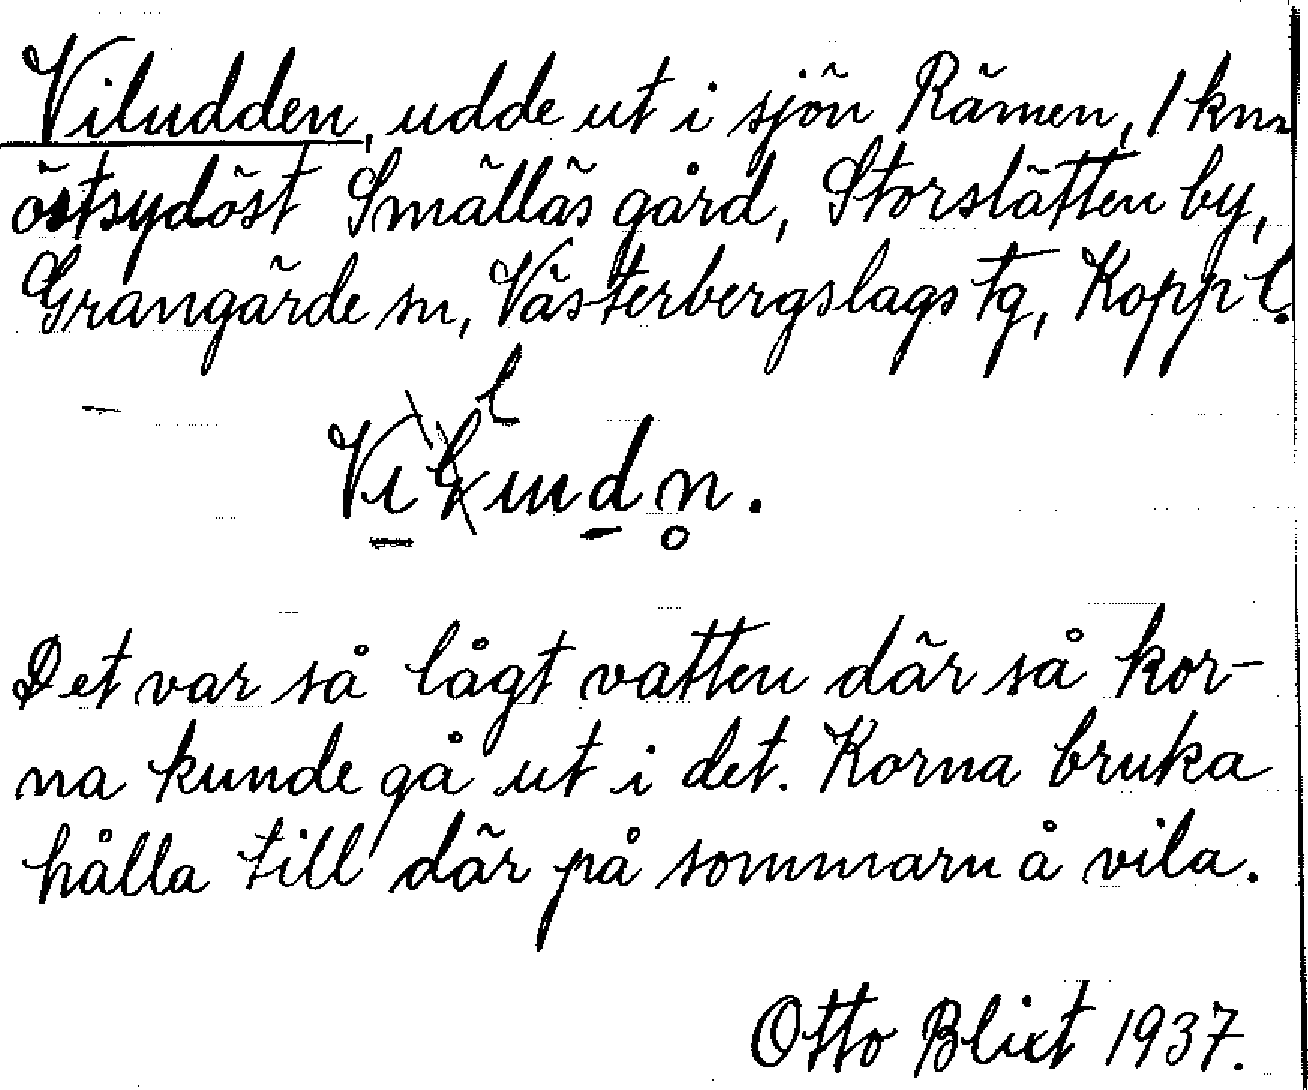 Viludden, udde ut i sjön Rämen, 1 km
östsydöst Smällås gård, Storslätten by,
Grangärde sn, Västerbergslags tg, Kopp l.
l
Vi
Det var så lågt vatten där så kor-
na kunde gå ut i det. Korna bruka
hålla till där på sommarn å vila.
Otto Blixt 1937.